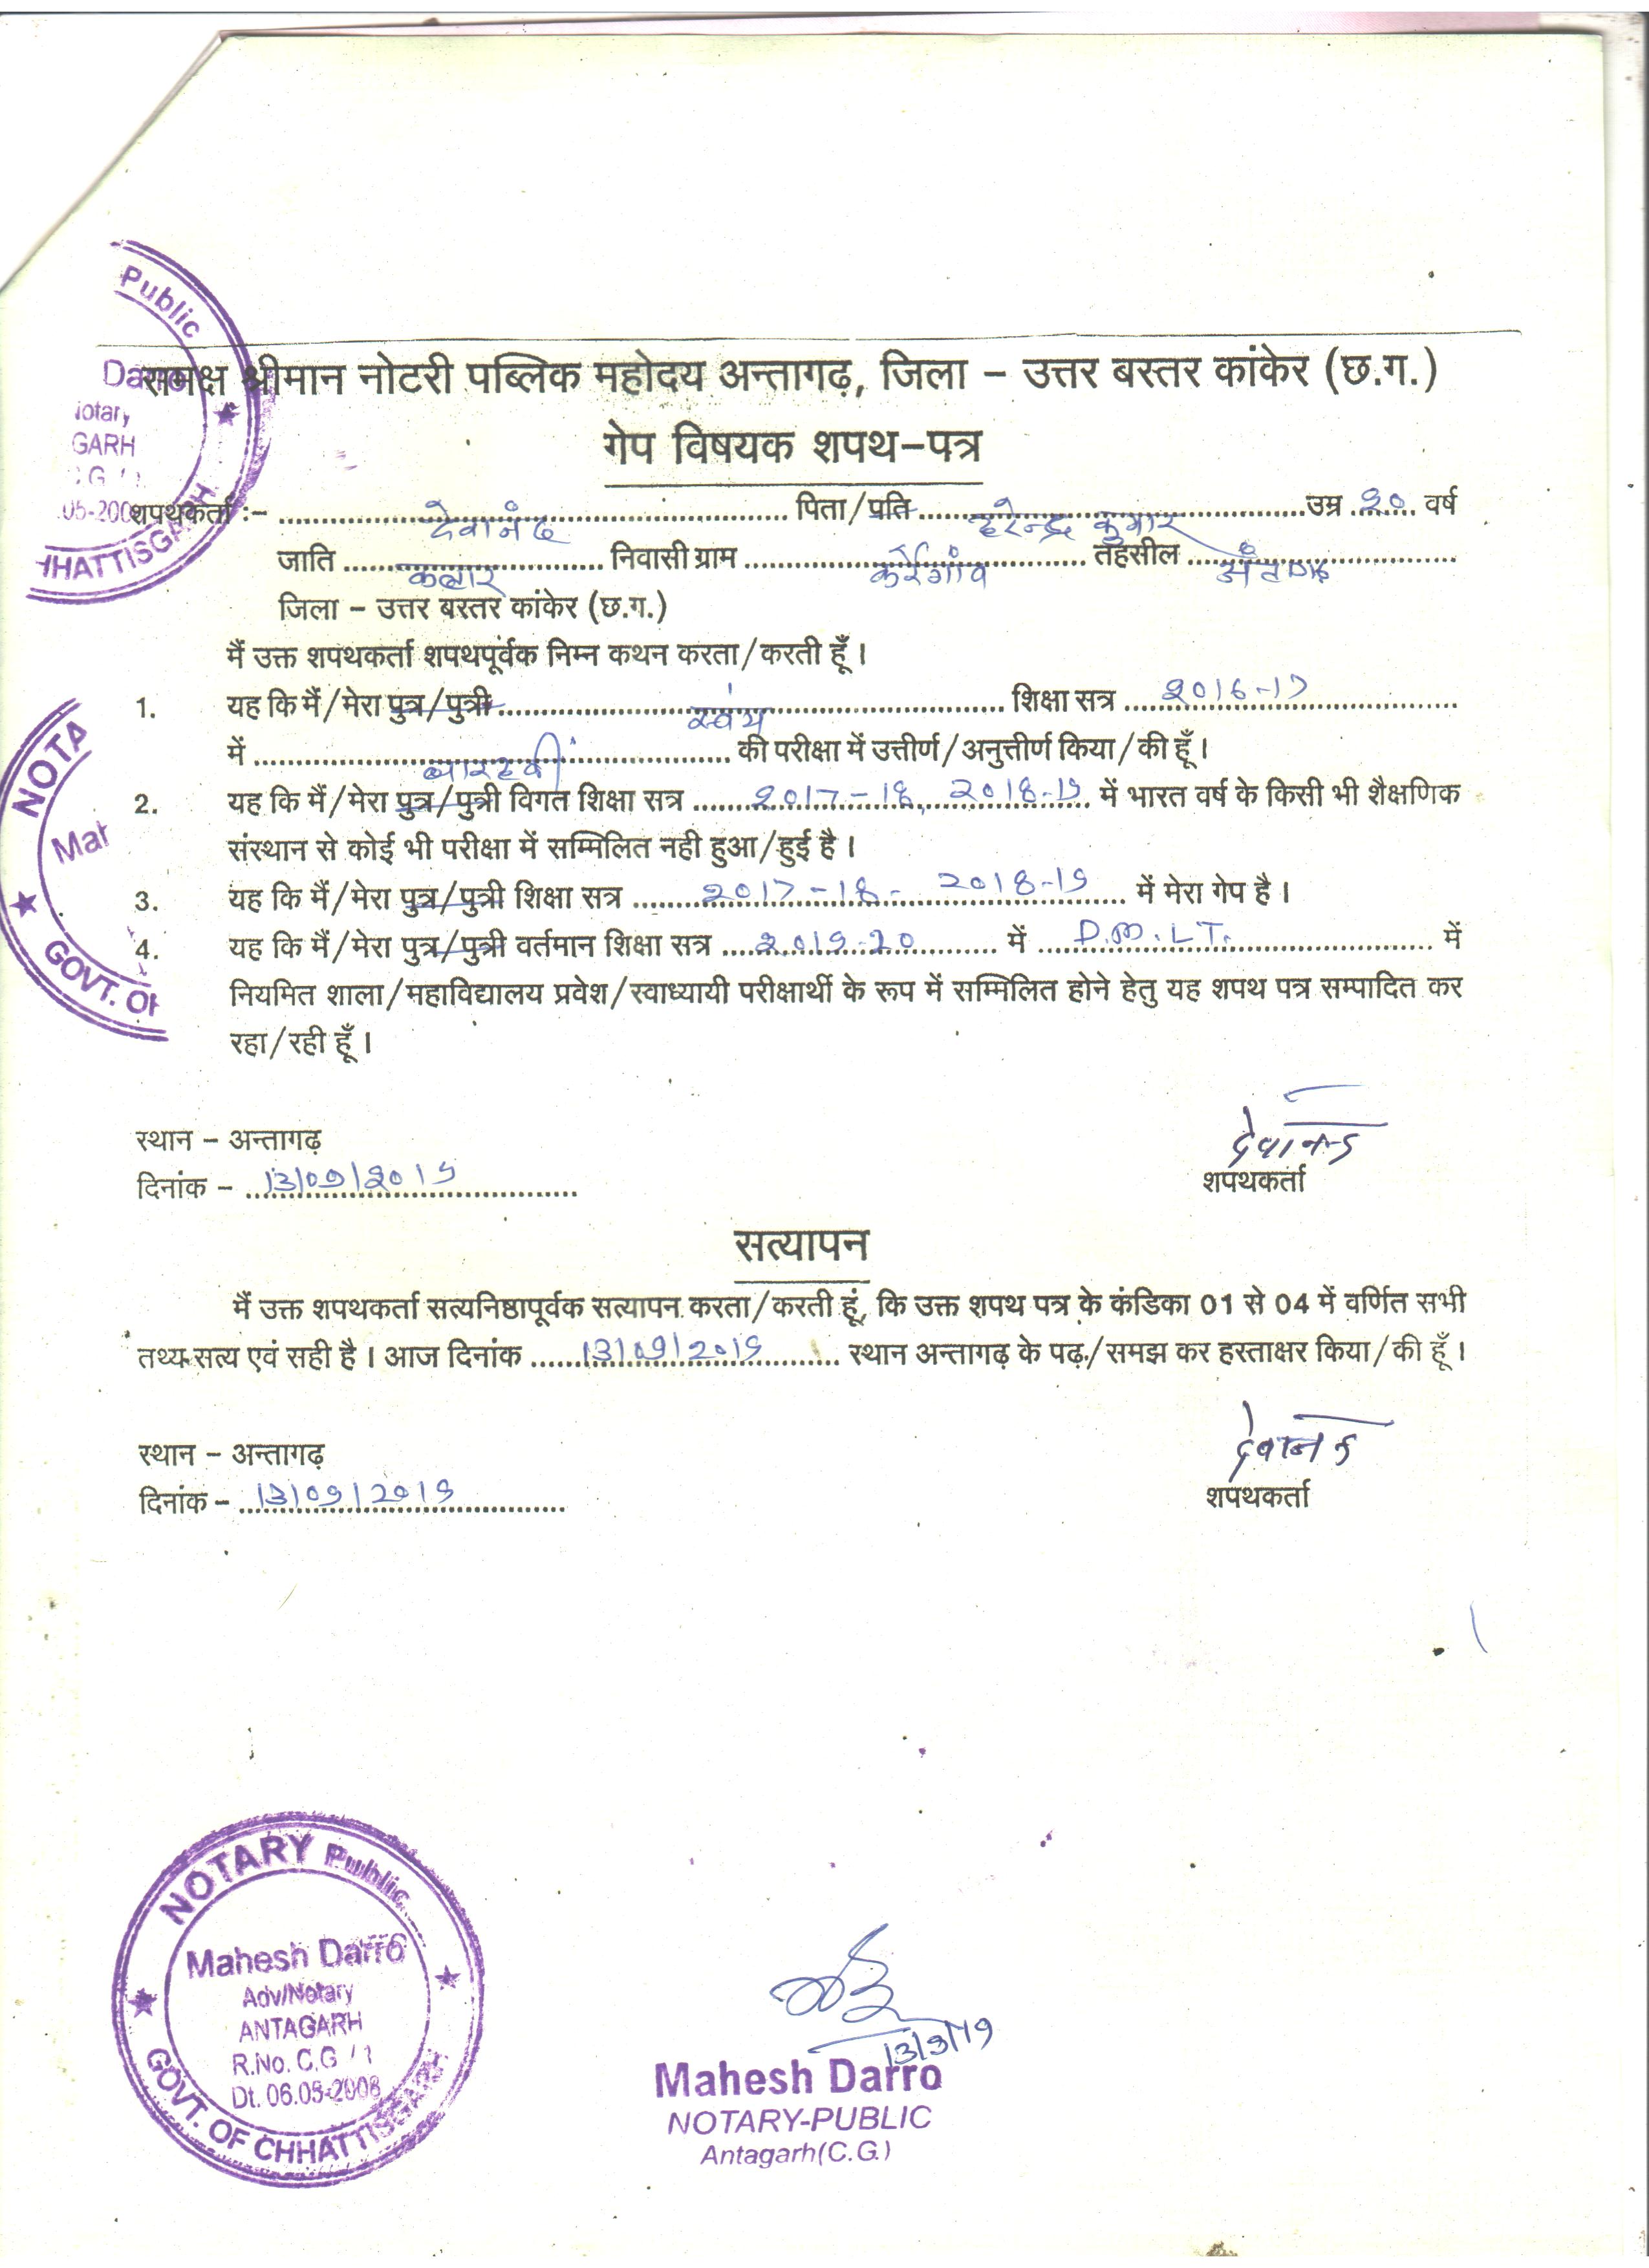 समक्ष श्रीमान नोटरी पब्लिक महोदय अन्तागढ़, जिला – उत्तर बस्तर कांकेर (छ.ग.)
गेप विषयक शपथ-पत्र
शपथकर्ता :- देवानंद पिता/प्रति हरेन्द्र कुमार उम्र 20 वर्ष
जाति कलार निवासी ग्राम तहसील अंतागढ़
जिला – उत्तर बस्तर कांकेर (छ.ग.)
मैं उक्त शपथकर्ता शपथपूर्वक निम्न कथन करता/करती हूँ।
1. यह कि मैं/मेरा पुत्र/पुत्री स्वंय शिक्षा सत्र 2016-17
में बारहवीं की परीक्षा में उत्तीर्ण/अनुत्तीर्ण किया/की हूँ।
2. यह कि मैं/मेरा पुत्र/पुत्री विगत शिक्षा सत्र 2017-18, 2018-19 में भारत वर्ष के किसी भी शैक्षणिक
संस्थान से कोई भी परीक्षा में सम्मिलित नही हुआ/हुई है।
3. यह कि मैं/मेरा पुत्र/पुत्री शिक्षा सत्र 2017-18- 2018-19 में मेरा गेप है।
4. यह कि मैं/मेरा पुत्र/पुत्री वर्तमान शिक्षा सत्र 2019-20 में D.M.L.T. में
नियमित शाला/महाविद्यालय प्रवेश/स्वाध्यायी परीक्षार्थी के रूप में सम्मिलित होने हेतु यह शपथ पत्र सम्पादित कर
रहा/रही हूँ।
देवानन्द
स्थान – अन्तागढ़
शपथकर्ता
दिनांक – 13/09/2019
सत्यापन
मैं उक्त शपथकर्ता सत्यनिष्ठापूर्वक सत्यापन करता/करती हूं, कि उक्त शपथ पत्र के कंडिका 01 से 04 में वर्णित सभी
तथ्य सत्य एवं सही है। आज दिनांक 13/09/2019 स्थान अन्तागढ़ के पढ़/समझ कर हस्ताक्षर किया/की हूँ।
देवानन्द
स्थान – अन्तागढ़
शपथकर्ता
दिनांक – 13/09/2019
NOTARY Public
Mahesh Darro
Adv/Notary
ANTAGARH
R.No. C.G
Dt. 06.05-2008
GOVT. OF CHHATTISGARH
13/9/19
Mahesh Darro
NOTARY-PUBLIC
Antagarh(C.G.)
Public
Notary
GARH
HHATTISGARH
NOTA
Mah
GOVT. OF